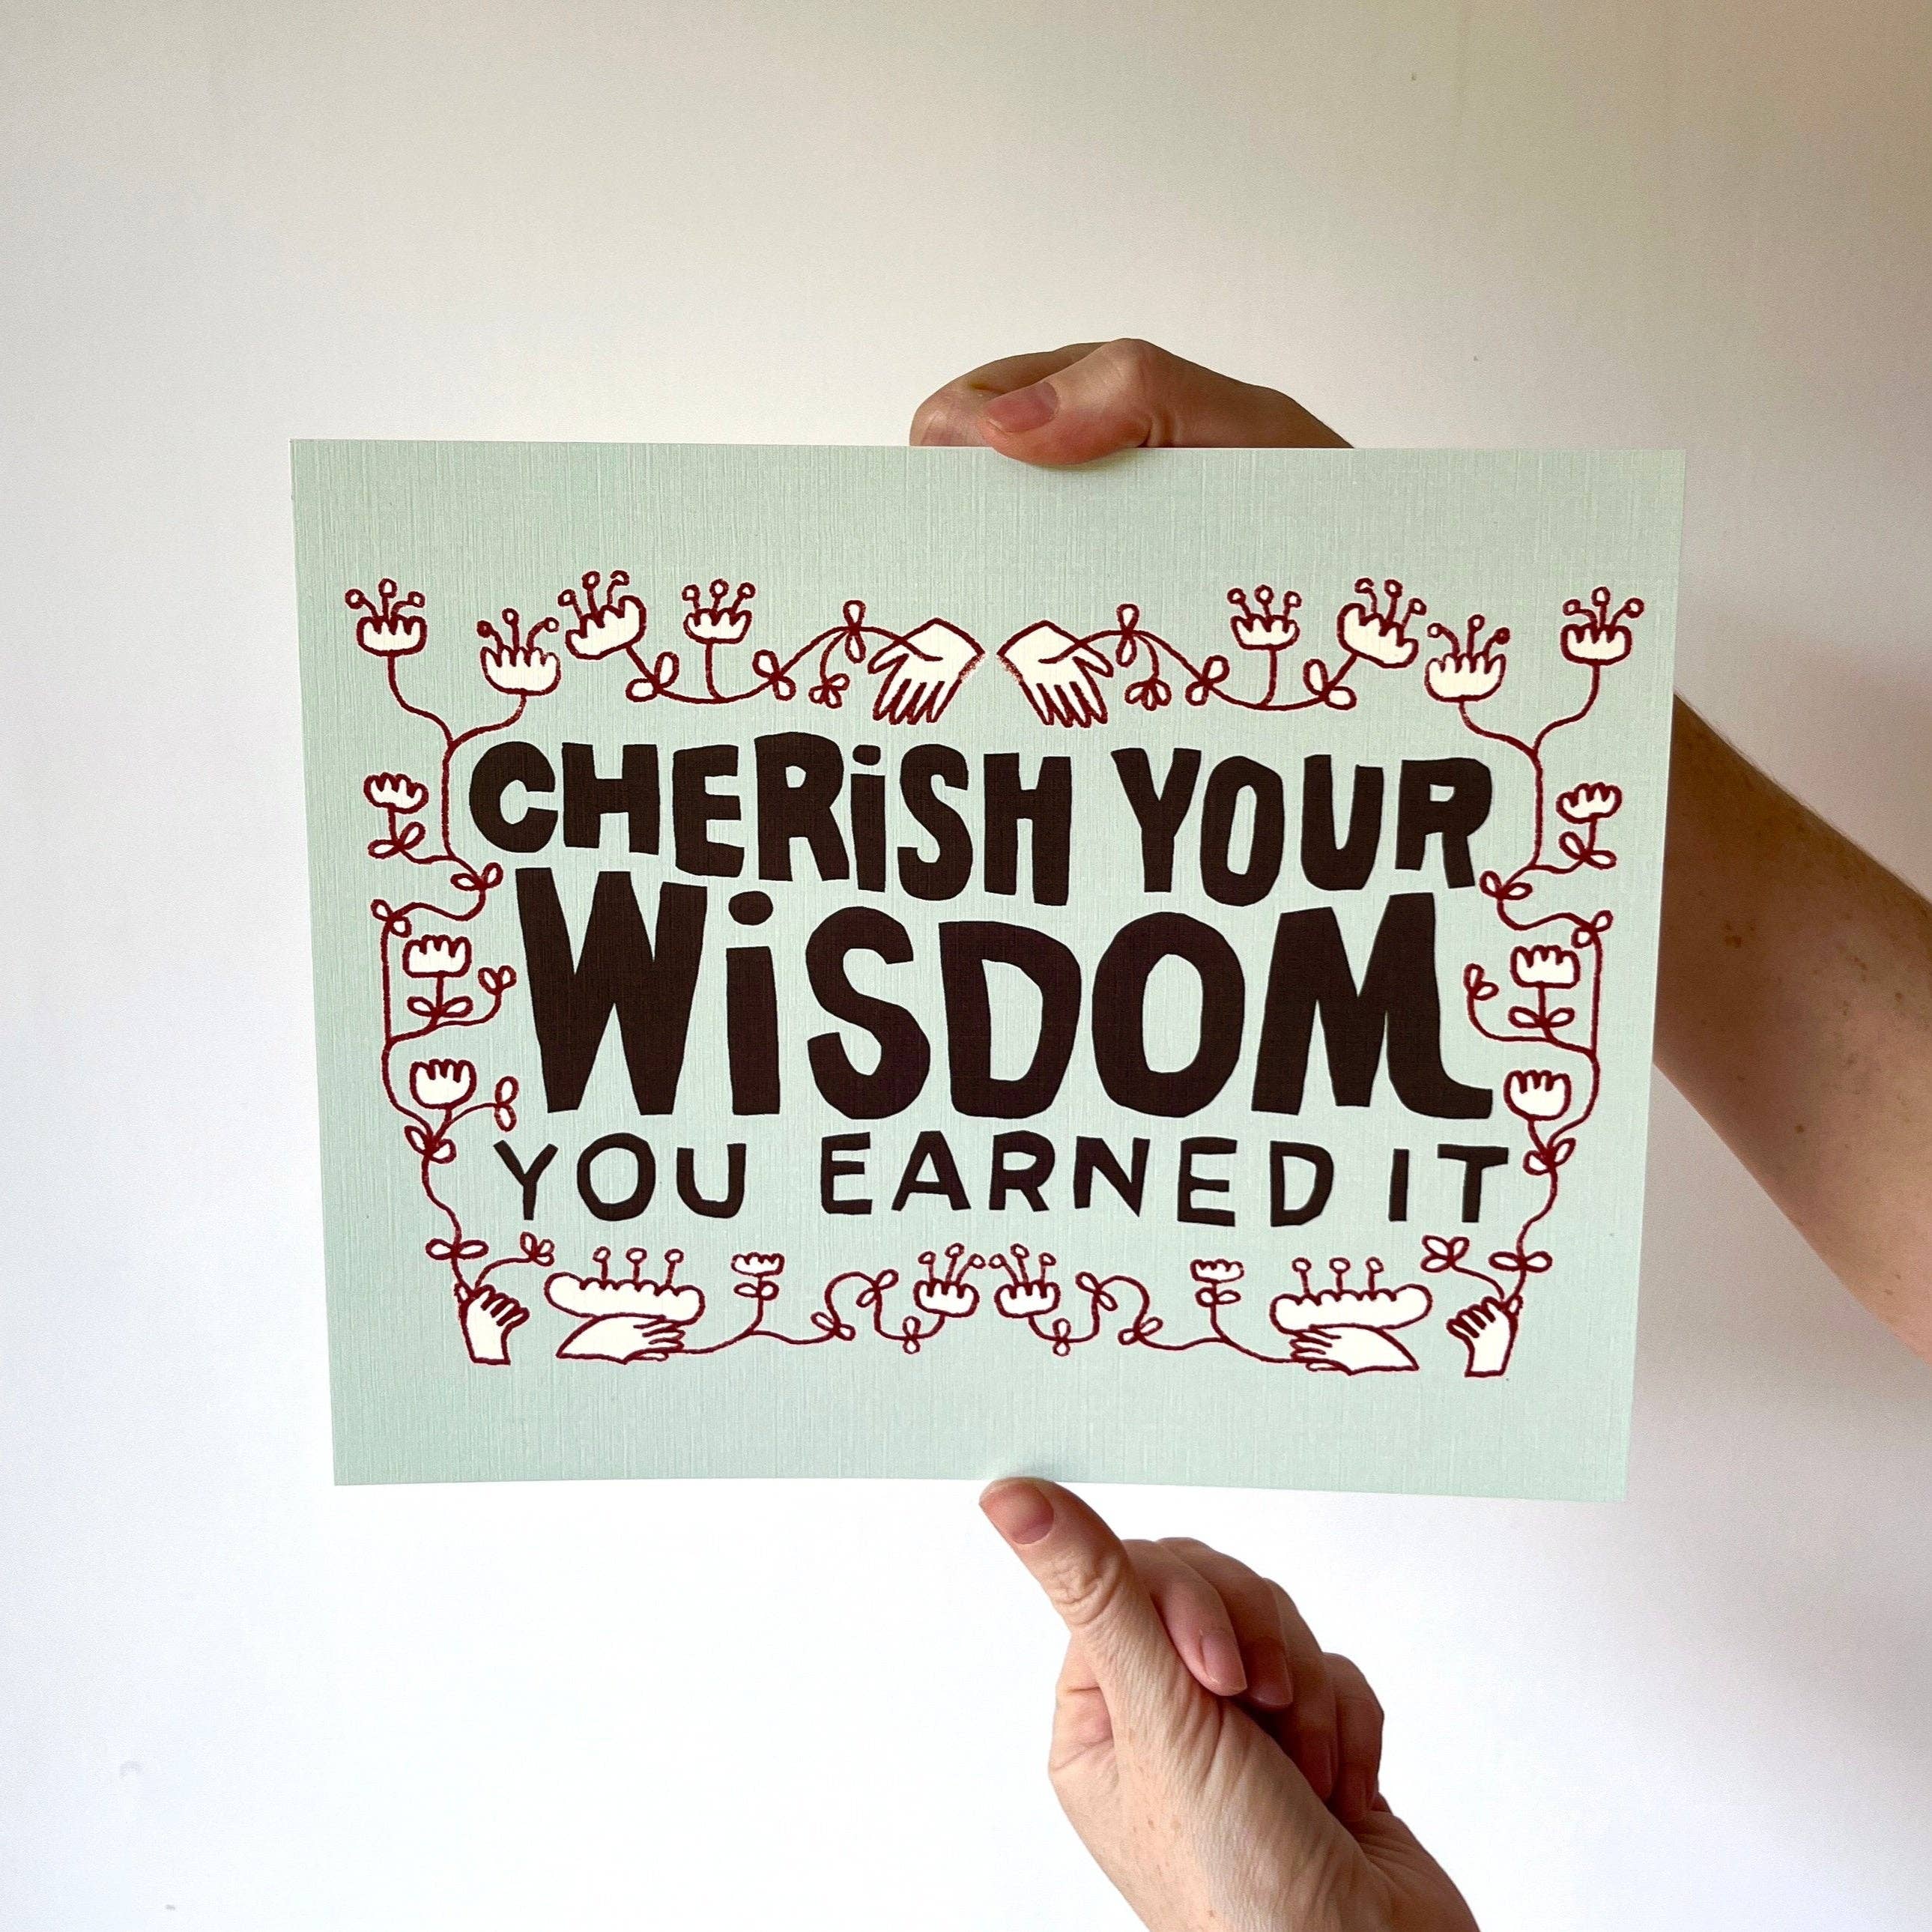 CHERiSH YOUR
WiSDOM
YOU EARNED IT